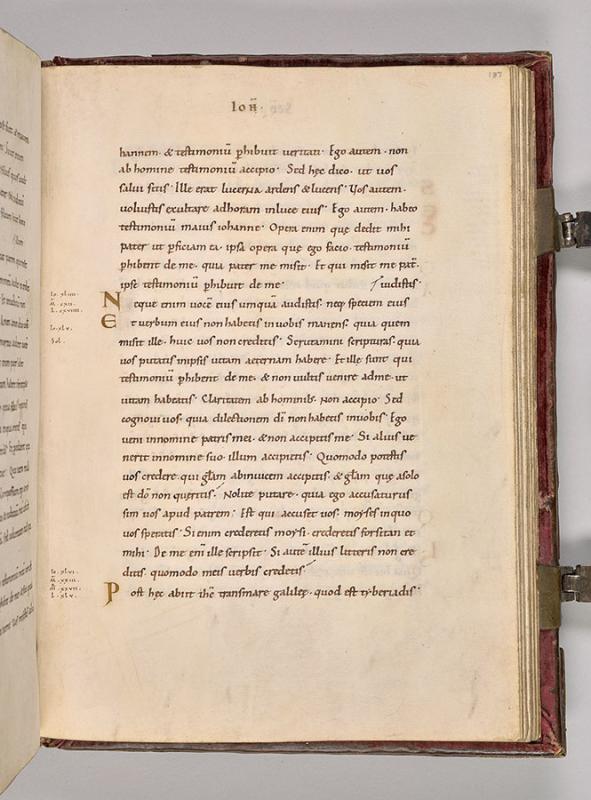 197
Ioħ·
hannem· & testimoniū phibuit ueritati· Ego autem· non
ab homine testimoniū accipio· Sed hęc dico· ut uos
salui sitis· Ille erat lucerna ardens & lucens· Vos autem·
uoluistis exultare adhoram inluce eius· Ego autem· habeo
testimoniū maius iohanne· Opera enim quę dedit mihi
pater ut pficiam ea· ipsa opera quę ego facio· testimoniū
phibent de me· quia pater me misit· Et qui misit me pat̄·
ipse testimoniū phibuit de me· / iudistis·
Neque enim uocē eius umquā audistis· neq; speciem eius
Et uerbum eius non habetis inuobis manens· quia quem
misit ille· huic uos non creditis· Scrutamini scripturas· quia
uos putatis inipsis uitam aeternam habere· Et ille sunt qui
testimoniū phibent de me· & non uultis uenire adme· ut
uitam habeatis· Claritatem ab hominib; non accipio· Sed
cognoui uos· quia dilectionem dī non habetis inuobis· Ego
ueni innomine patris mei· & non accipitis me· Si alius ue
nerit innomine suo· illum accipietis· Quomodo potestis
uos credere· qui głam abinuicem accipitis· & głam quę asolo
est dō non queritis· Nolite putare· quia ego accusaturus
sim uos apud patrem· Est qui accuset uos· moyses inquo
uos speratis· Si enim crederetis moysi· crederetis forsitan et
mihi· De me enī ille scripsit· Si autē illius litteris non cre
ditis· quomodo meis uerbis credetis·
Post hęc abiit ihc̄ transmare galileę· quod est tyberiadis·